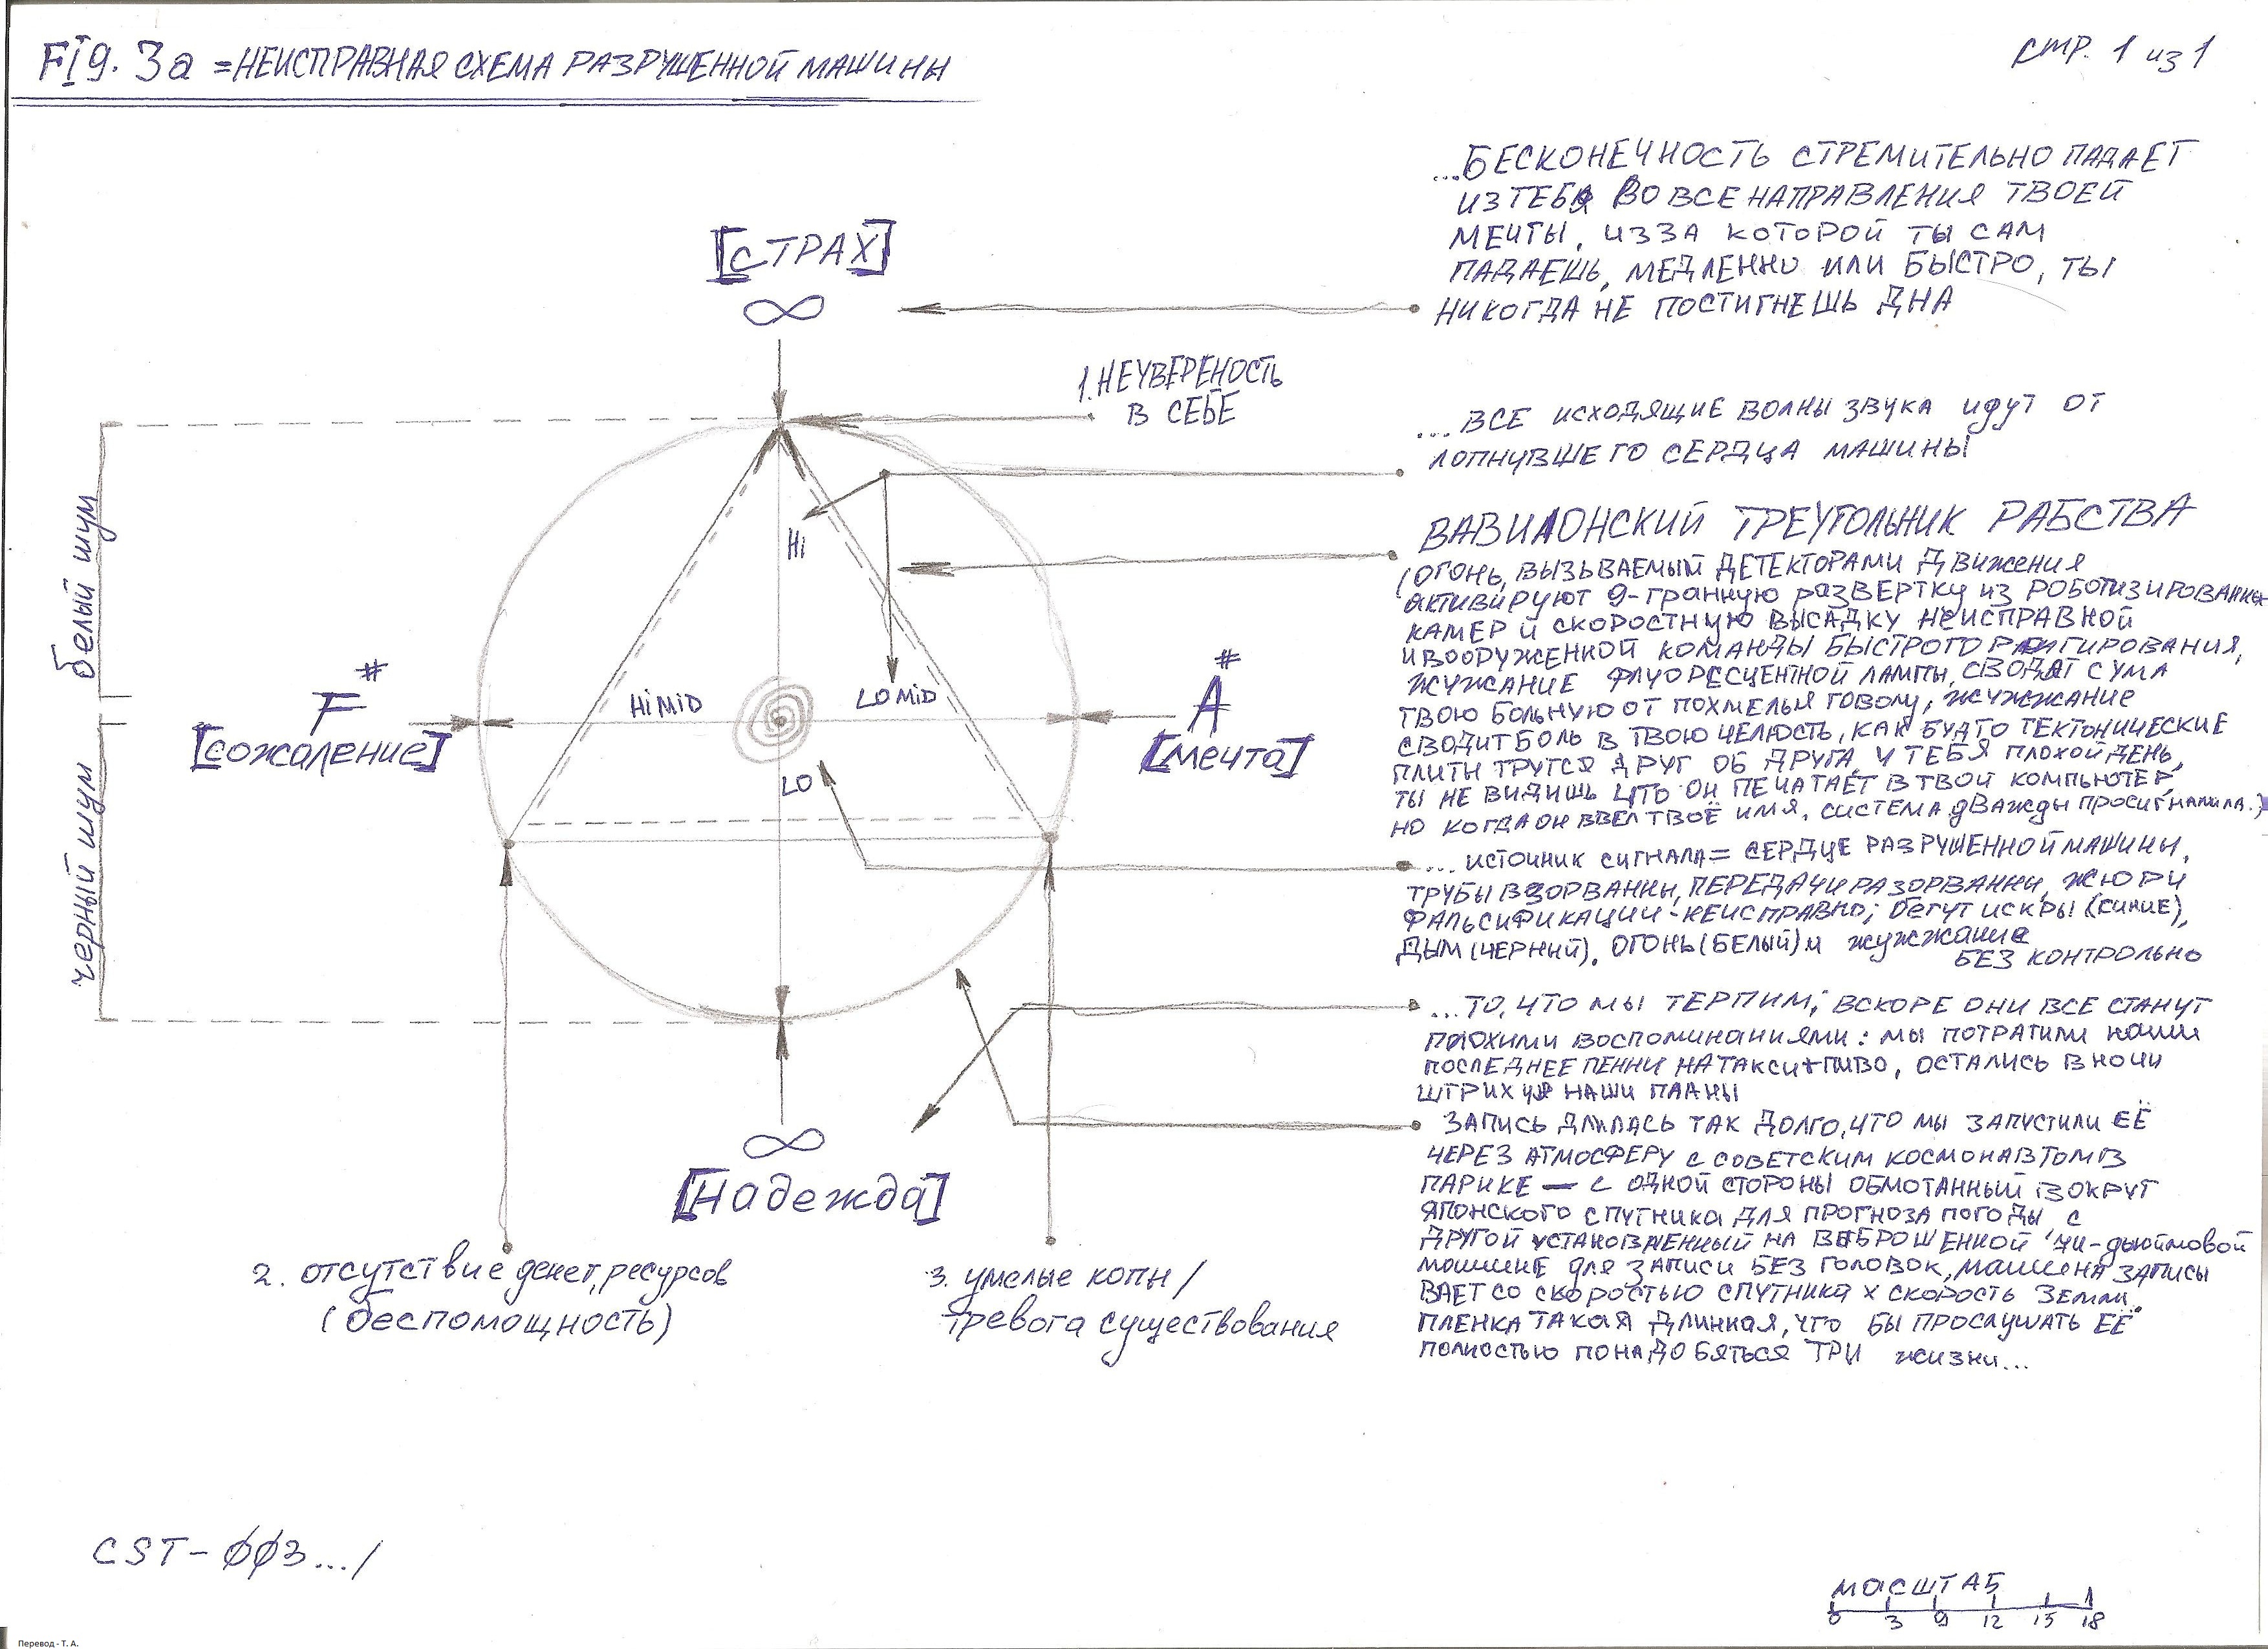 Fig. 3a = НЕИСПРАВНАЯ СХЕМА РАЗРУШЕННОЙ МАШИНЫ
стр. 1 из 1
...БЕСКОНЕЧНОСТЬ СТРЕМИТЕЛЬНО ПАДАЕТ
ИЗ ТЕБЯ ВО ВСЕ НАПРАВЛЕНИЯ ТВОЕЙ
МЕЧТЫ, ИЗЗА КОТОРОЙ ТЫ САМ
ПАДАЕШЬ, МЕДЛЕННО ИЛИ БЫСТРО, ТЫ
НИКОГДА НЕ ПОСТИГНЕШЬ ДНА
[СТРАХ]
∞
1. НЕУВЕРЕНОСТЬ
В СЕБЕ
...ВСЕ ИСХОДЯЩИЕ ВОЛНЫ ЗВУКА ИДУТ ОТ
ЛОПНУВШЕГО СЕРДЦА МАШИНЫ
ВАВИЛОНСКИЙ ТРЕУГОЛЬНИК РАБСТВА
(ОГОНЬ, ВЫЗЫВАЕМЫЙ ДЕТЕКТОРАМИ ДВИЖЕНИЯ
АКТИВИРУЮТ 9-ГРАННУЮ РАЗВЕРТКУ ИЗ РОБОТИЗИРОВАННЫХ
КАМЕР И СКОРОСТНУЮ ВЫСАДКУ НЕИСПРАВНОЙ
И ВООРУЖЕННОЙ КОМАНДЫ БЫСТРОГО
ЖУЖАНИЕ ФЛУОРЕСЦЕНТНОЙ ЛАМПЫ, СВОДЯТ С УМА
ТВОЮ БОЛЬНУЮ ОТ ПОХМЕЛЬЯ ГОВОЛУ, ЖУЖЖАНИЕ
СВОДИТ БОЛЬ В ТВОЮ ЧЕЛЮСТЬ, КАК БУДТО ТЕКТОНИЧЕСКИЕ
ПЛИТЫ ТРУТСЯ ДРУГ ОБ ДРУГА, У ТЕБЯ ПЛОХОЙ ДЕНЬ,
ТЫ НЕ ВИДИШЬ ЧТО ОН ПЕЧАТАЕТ В ТВОЙ КОМПЬЮТЕР,
НО КОГДА ОН ВВЕЛ ТВОЁ ИМЯ, СИСТЕМА ДВАЖДЫ ПРОСИГНАЛИЛА.)
белый шум
черный шум
Hi
HiMiD
LOMiD
LO
F#
[сожаление]
A#
[мечта]
...ИСТОЧНИК СИГНАЛА = СЕРДЦЕ РАЗРУШЕННОЙ МАШИНЫ,
ТРУБЫ ВЗОРВАННЫ, ПЕРЕДАЧИ РАЗОРВАННЫ, ЖЮРИ
ФАЛЬСИФИКАЦИИ - НЕИСПРАВНО; БЕГУТ ИСКРЫ (СИНИЕ),
ДЫМ (ЧЕРНЫЙ), ОГОНЬ (БЕЛЫЙ) И ЖУЖЖАНИЕ
БЕЗ КОНТРОЛЬНО
...ТО, ЧТО МЫ ТЕРПИМ; ВСКОРЕ ОНИ ВСЕ СТАНУТ
ПЛОХИМИ ВОСПОМИНАНИЯМИ: МЫ ПОТРАТИЛИ НАШИ
ПОСЛЕДНЕЕ ПЕННИ НА ТАКСИ+ПИВО, ОСТАЛИСЬ В НОЧИ
ШТРИХУЯ НАШИ ПЛАНЫ
ЗАПИСЬ ДЛИЛАСЬ ТАК ДОЛГО, ЧТО МЫ ЗАПУСТИЛИ ЕЁ
ЧЕРЕЗ АТМОСФЕРУ С СОВЕТСКИМ КОСМОНАВТОМ В
ПАРИКЕ — С ОДНОЙ СТОРОНЫ ОБМОТАННЫЙ ВОКРУГ
ЯПОНСКОГО СПУТНИКА ДЛЯ ПРОГНОЗА ПОГОДЫ С
ДРУГОЙ УСТАНОВЛЕННЫЙ НА ВЫБРОШЕННОЙ -дюймовой
МАШИНЕ ДЛЯ ЗАПИСИ БЕЗ ГОЛОВОК, МАШИНА ЗАПИСЫ
ВАЕТ СО СКОРОСТЬЮ СПУТНИКА X СКОРОСТЬ ЗЕМЛИ.
ПЛЕНКА ТАКАЯ ДЛИННАЯ, ЧТО БЫ ПРОСЛУШАТЬ ЕЁ
ПОЛНОСТЬЮ ПОНАДОБЯТЬСЯ ТРИ ЖИЗНИ...
∞
[Надежда]
2. отсутствие денег, ресурсов
(беспомощность)
3. умелые копы /
тревога существования
CST-ØØ3.../
МАСШТАБ
0 3 9 12 15 18
Перевод - Т. А.